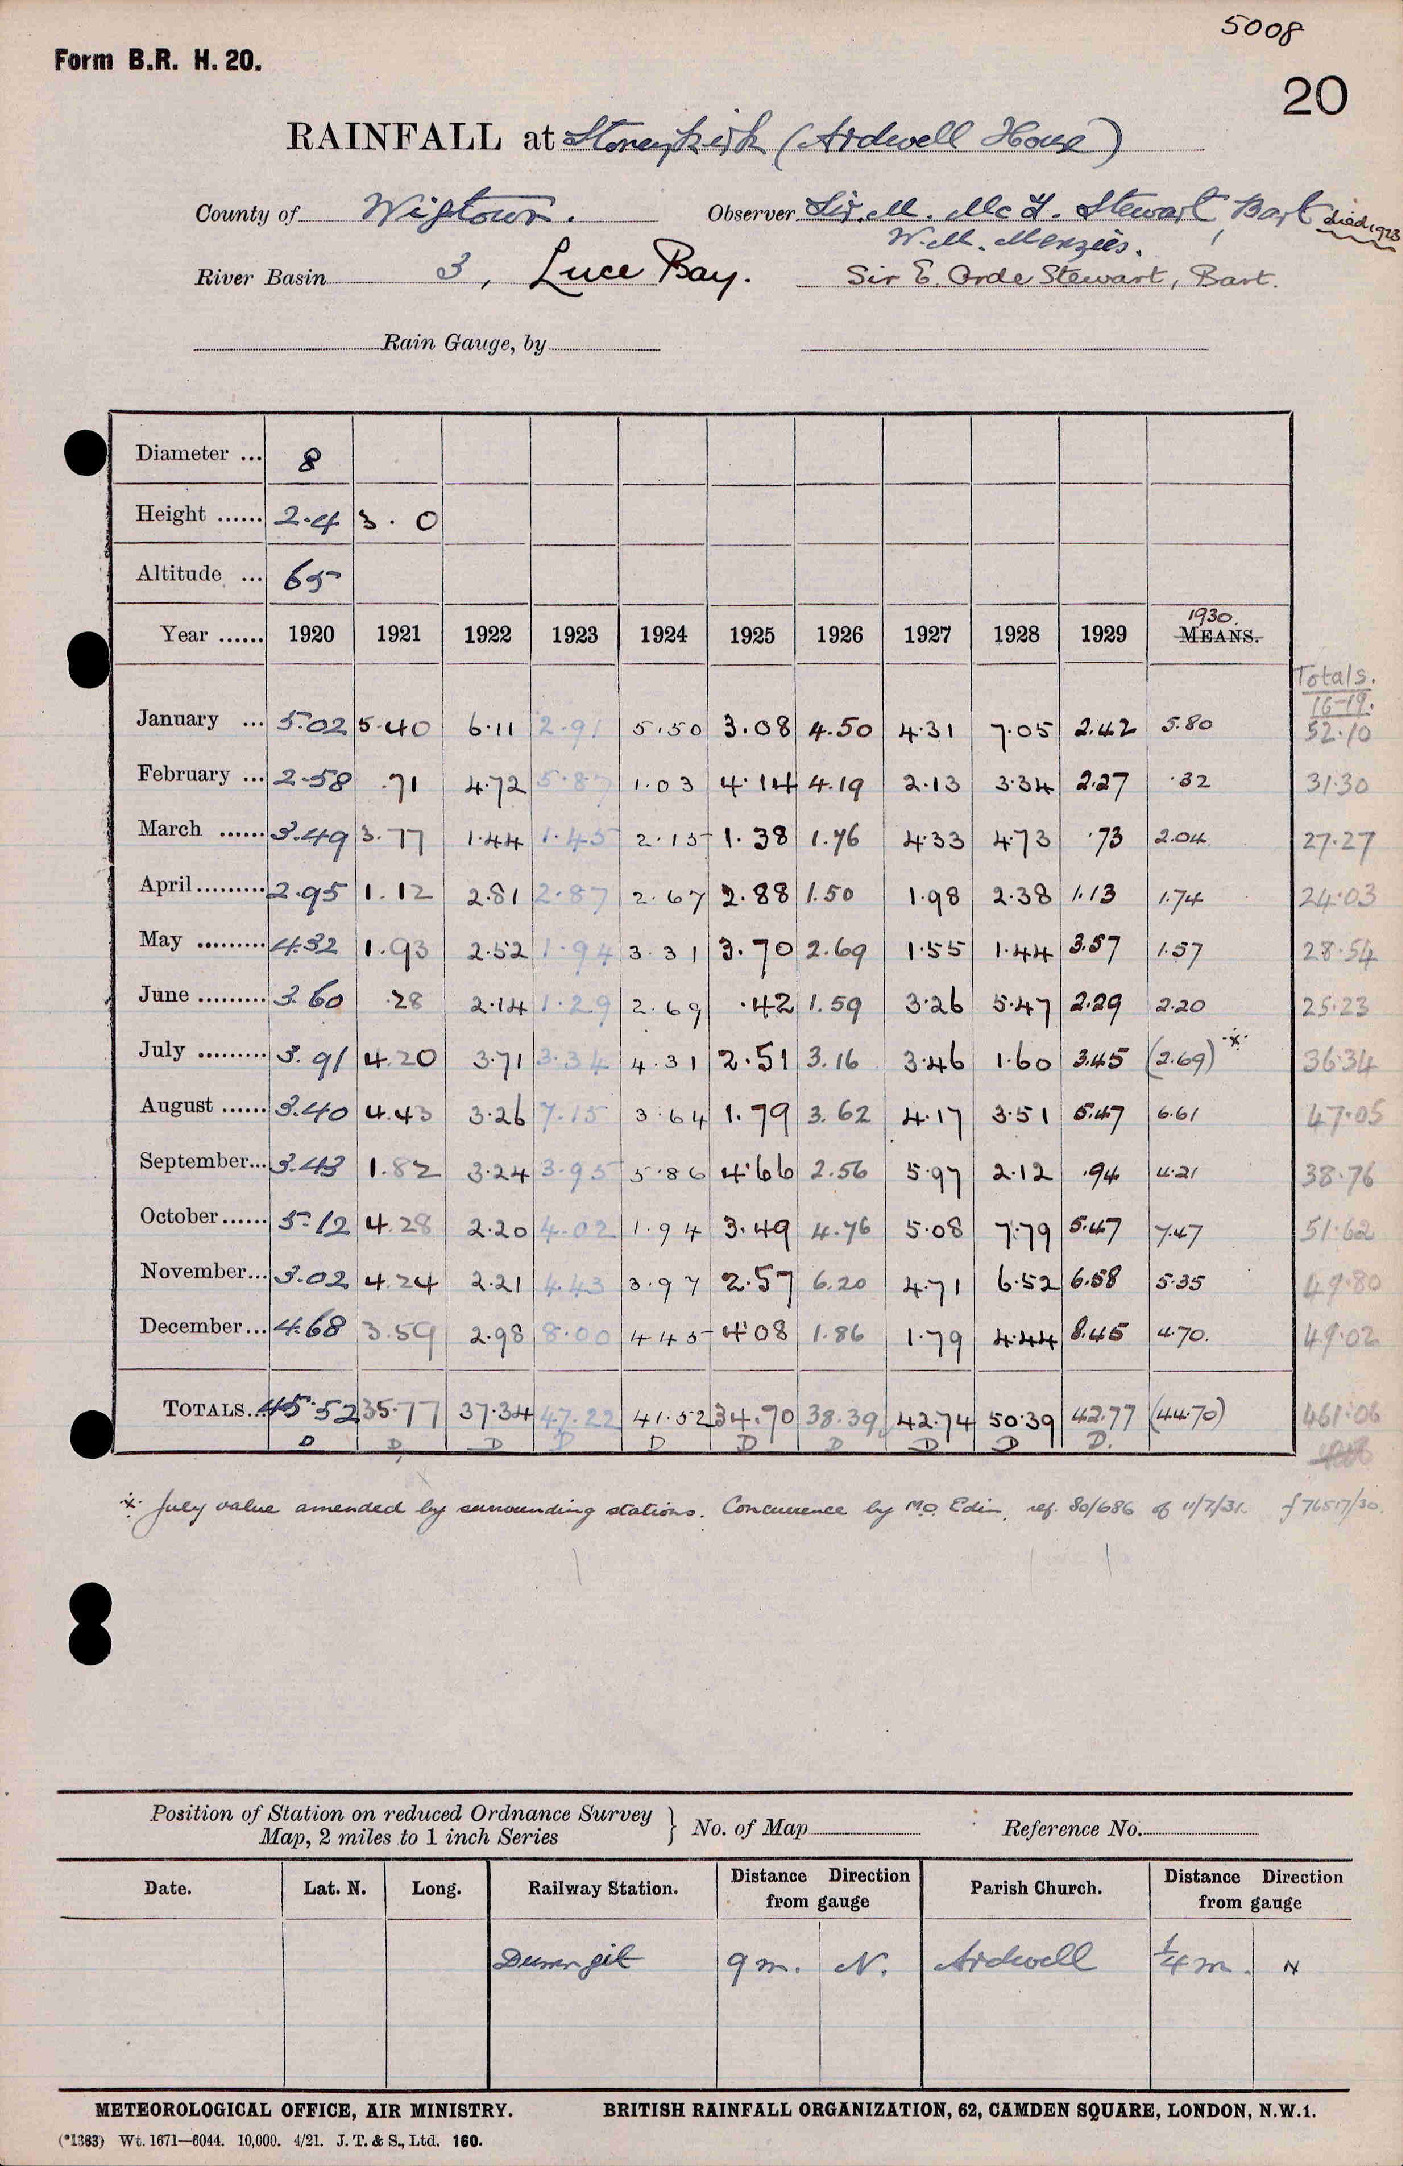 5008
Form B.R. H. 20.
20
RAINFALL at Stoneykirk (Ardwell House)
County of Wigtown. Observer Sir. M. Mc T. Stewart, Bart died 1923
W. M. Menzies.
River Basin 3, Luce Bay. Sir E. Orde Stewart, Bart.
Rain Gauge, by
Diameter ... 8
Height ...... 2.4 3.0
Altitude ... 65
1930.
Year ...... 1920 1921 1922 1923 1924 1925 1926 1927 1928 1929 MEANS.
Totals.
16-19.
January ... 5.02 5.40 6.11 2.91 5.50 3.08 4.50 4.31 7.05 2.42 5.80 52.10
February ... 2.58 .71 4.72 5.87 1.03 4.14 4.19 2.13 3.34 2.27 .32 31.30
March ...... 3.49 3.77 1.44 1.45 2.15 1.38 1.76 4.33 4.73 .73 2.04 27.27
April ......... 2.95 1.12 2.81 2.87 2.67 2.88 1.50 1.98 2.38 1.13 1.74 24.03
May ......... 4.32 1.93 2.52 1.94 3.31 3.70 2.69 1.55 1.44 3.57 1.57 28.54
June ......... 3.60 .28 2.14 1.29 2.69 .42 1.59 3.26 5.47 2.29 2.20 25.23
July ......... 3.91 4.20 3.71 3.34 4.31 2.51 3.16 3.46 1.60 3.45 (2.69) * 36.34
August ...... 3.40 4.43 3.26 7.15 3.64 1.79 3.62 4.17 3.51 5.47 6.61 47.05
September... 3.43 1.82 3.24 3.95 5.86 4.66 2.56 5.97 2.12 .94 4.21 38.76
October ...... 5.12 4.28 2.20 4.02 1.94 3.49 4.76 5.08 7.79 5.47 7.47 51.62
November... 3.02 4.24 2.21 4.43 3.97 2.57 6.20 4.71 6.52 6.58 5.35 49.80
December... 4.68 3.59 2.98 8.00 4.45 4.08 1.86 1.79 4.44 8.45 4.70. 49.02
TOTALS... 45.52 35.77 37.34 47.22 41.52 34.70 38.39 42.74 50.39 42.77 (44.70) 461.06
D D D D D D D D D D.
* July value amended by surrounding stations. Concurrence by M.O. Edin, ref. 80/686 of 11/7/31. f 76517/30.
Position of Station on reduced Ordnance Survey
Map, 2 miles to 1 inch Series } No. of Map Reference No.
Date. Lat. N. Long. Railway Station. Distance Direction from gauge Parish Church. Distance Direction from gauge
9 m. N. Ardwell 1/4 m. N
METEOROLOGICAL OFFICE, AIR MINISTRY. BRITISH RAINFALL ORGANIZATION, 62, CAMDEN SQUARE, LONDON, N.W.1.
(*1383) Wt. 1671—6044. 10,000. 4/21. J. T. & S., Ltd. 160.